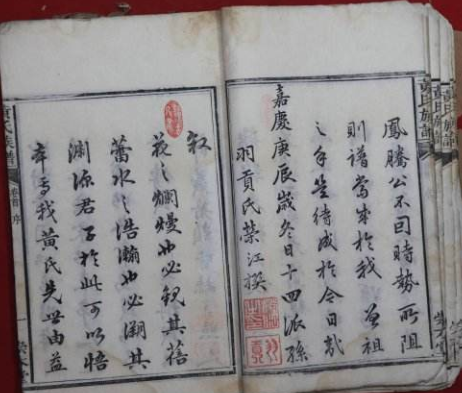 鳳騰公不因時勢所阻
則譜當成於我曾祖
之手豈待成於今日哉
嘉慶庚辰歲冬日十四派孫
羽貢氏榮江撰
叙
之爛熳也必視其
蓄水之浩瀚也必溯其
淵源君子於此可以悟
矣我黃氏先世由益
黃氏族譜
卷首序